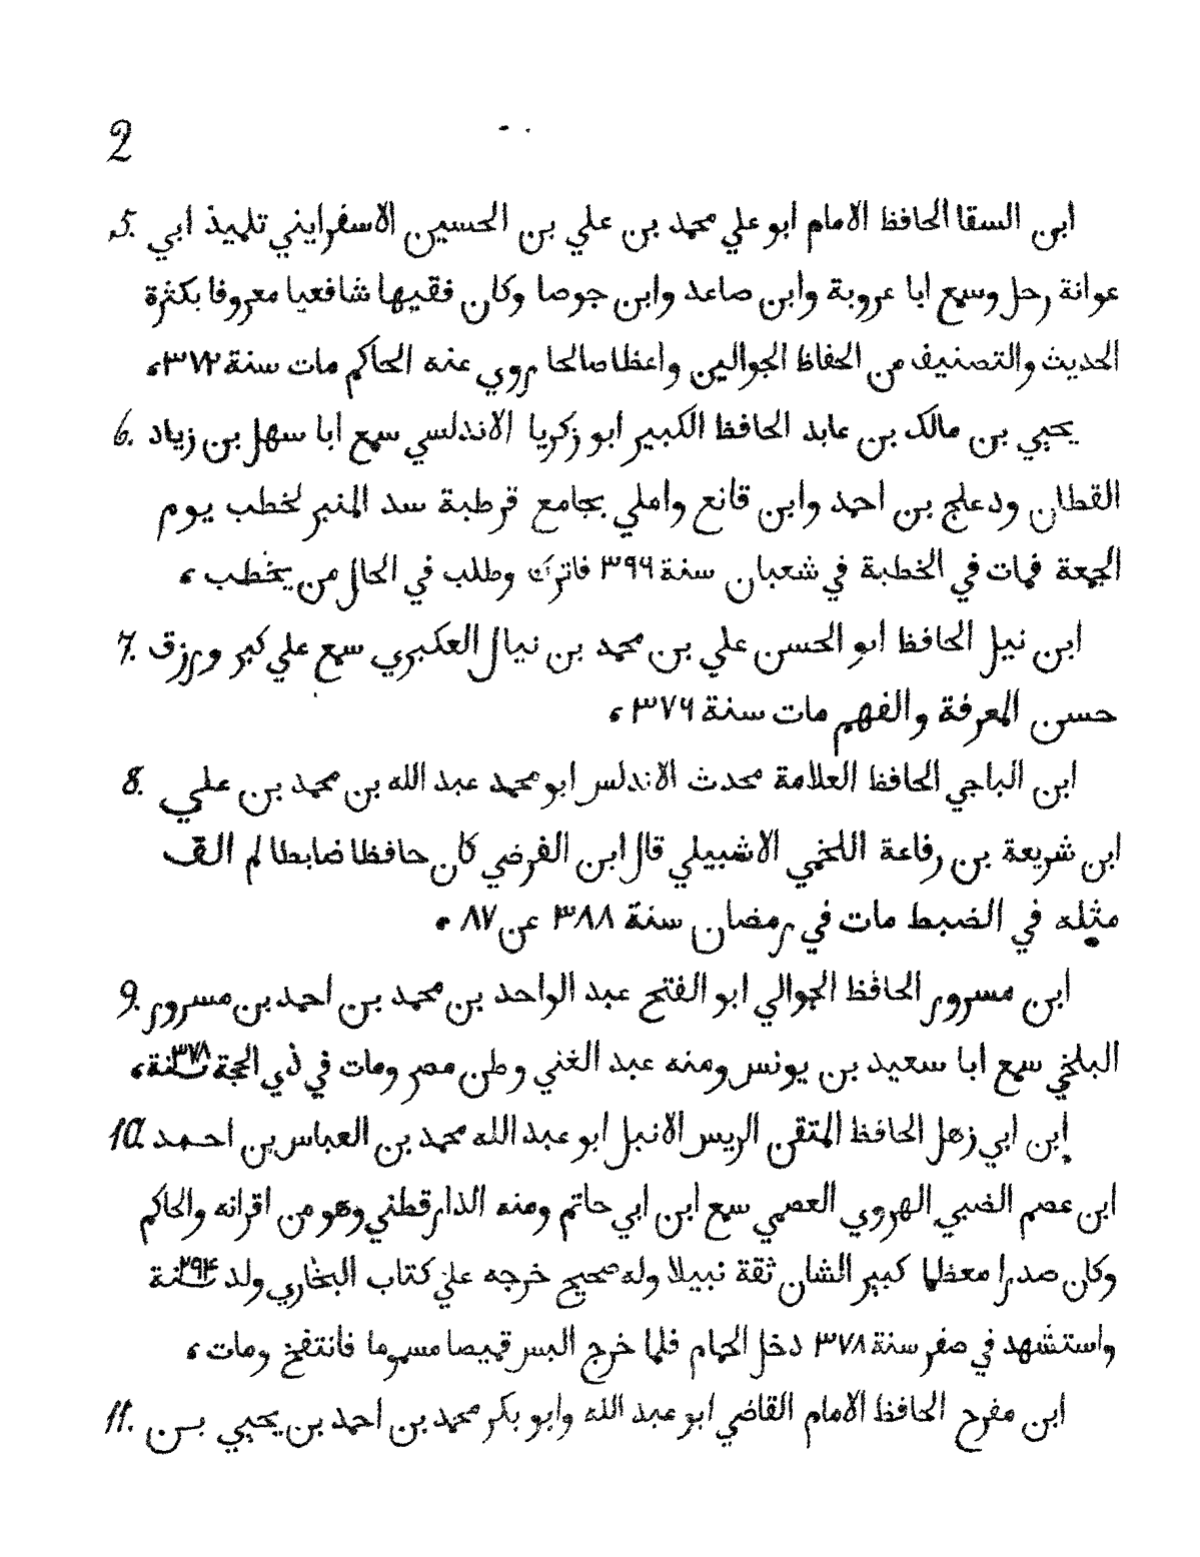 2
5. ابن السقا الحافظ الامام ابو علي محمد بن علي بن الحسين الاسفرايني تلميذ ابي
عوانة رحل وسمع ابا عروبة وابن صاعد وابن جوصا وكان فقيها شافعيا معروفا بكثرة
الحديث والتصنيف من الحفاظ الجوالين واعظا صالحا روي عنه الحاكم مات سنة ٣٧٢،
6. يحيي بن مالك بن عابد الحافظ الكبير ابو زكريا الاندلسي سمع ابا سهل بن زياد
القطان ودعلج بن احمد وابن قانع واملي بجامع قرطبة سد المنبر لخطب يوم
الجمعة فمات في الخطبة في شعبان سنة ٣٩٦ فاترك وطلب في الحال من يخطب،
7. ابن نيل الحافظ ابو الحسن علي بن محمد بن نيال العكبري سمع علي كبر ورزق
حسن المعرفة والفهم مات سنة ٣٧٦،
8. ابن الباجي الحافظ العلامة محدث الاندلس ابو محمد عبد الله بن محمد بن علي
ابن شريعة بن رفاعة اللخمي الاشبيلي قال ابن الفرضي كان حافظا ضابطا لم الق
مثله في الضبط مات في رمضان سنة ٣٨٨ عن ٨٧ .
9. ابن مسرور الحافظ الجوالي ابو الفتح عبد الواحد بن محمد بن احمد بن مسرور
البلخي سمع ابا سعيد بن يونس ومنه عبد الغني وطن مصر ومات في ذي الحجة سنة ٣٧٨،
10. ابن ابي زهل الحافظ المتقن الريس الانبل ابو عبد الله محمد بن العباس بن احمد
ابن عصم الضبي الهروي العصمي سمع ابن ابي حاتم ومنه الدارقطني وهو من اقرانه والحاكم
وكان صدرا معظما كبير الشان ثقة نبيلا وله صحيح خرجه علي كتاب البخاري ولد سنة ٣٩٤
واستشهد في صفر سنة ٣٧٨ دخل الحمام فلما خرج البس قميصا مسموما فانتفخ ومات،
11. ابن مفرح الحافظ الامام القاضي ابو عبد الله وابو بكر محمد بن احمد بن يحيي بن